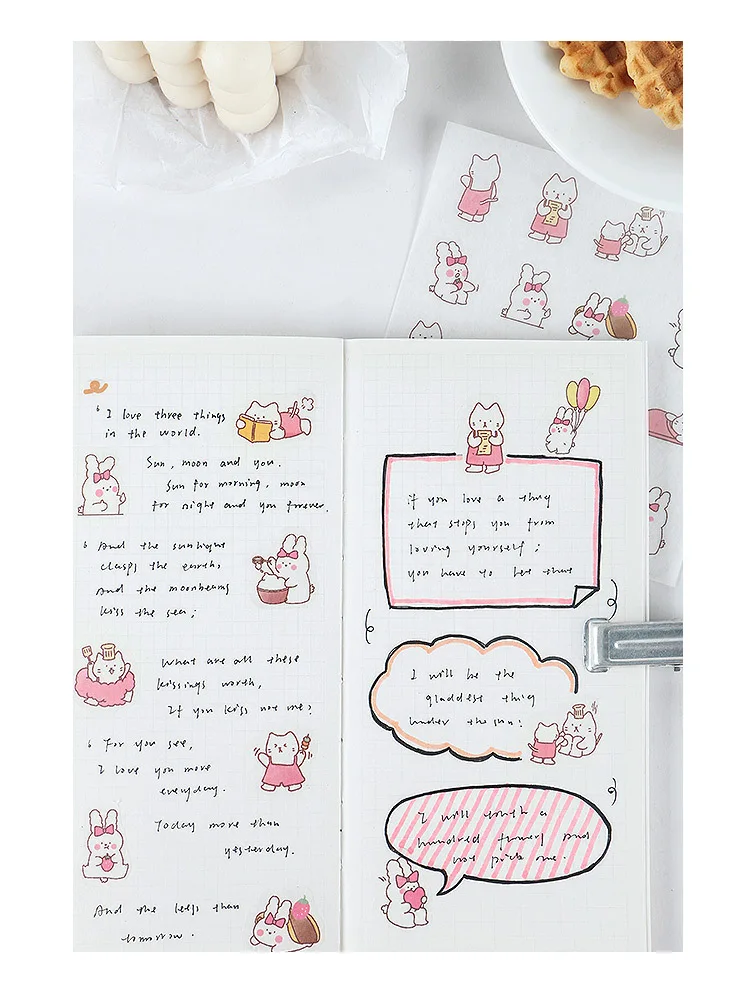 I love three things
in the world.
Sun, moon and you.
Sun for morning, moon
for night and you forever.
And the sunlight
clasps the earth,
And the moonbeams
kiss the sea;
What are all these
kissings worth,
If you kiss not me?
For you see,
I love you more
everyday.
Today more than
yesterday.
And the less than
tomorrow.
if you love a thing
that stops you from
loving yourself;
you have to let that
I will be the
gladdest thing
under the sun!
I will touch a
hundred flowers and
not pick one.